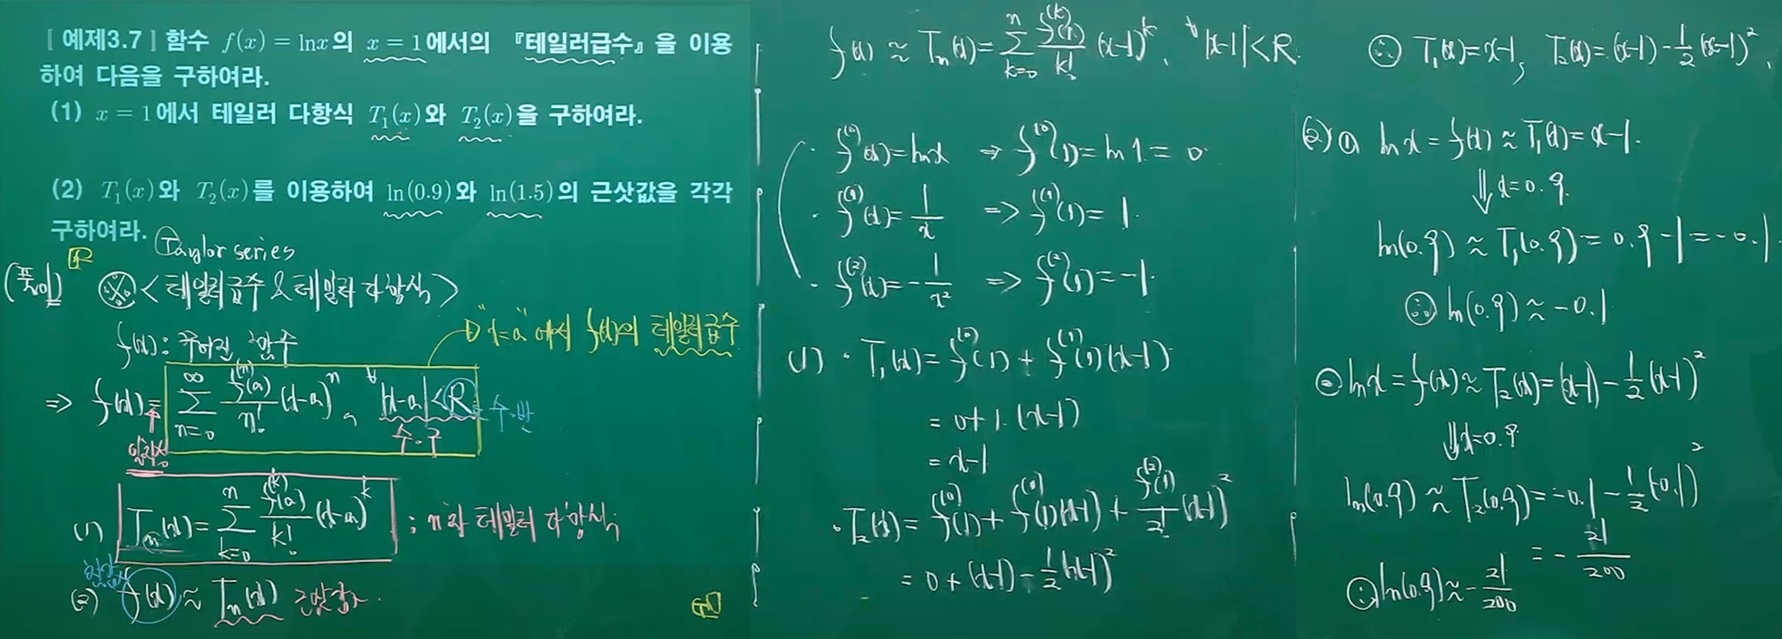 [ 예제3.7 ] 함수 f(x) = lnx의 x = 1에서의 『테일러급수』을 이용
하여 다음을 구하여라.
(1) x = 1에서 테일러 다항식 T₁(x)와 T₂(x)을 구하여라.
(2) T₁(x)와 T₂(x)를 이용하여 ln(0.9)와 ln(1.5)의 근삿값을 각각
구하여라.
Taylor series
(풀이) <테일러급수 & 테일러 다항식>
f(x): 주어진 함수
"x=a"에서 f(x)의 테일러급수
=> f(x) = ∑_{n=0}^{∞} f⁽ⁿ⁾(a)/n! (x-a)ⁿ, ∀|x-a|<R
수·구
(1) Tₙ(x) = ∑_{k=0}^{n} f⁽ᵏ⁾(a)/k! (x-a)ᵏ ; n차 테일러 다항식
(2) f(x) ≈ Tₙ(x) 근삿값
f(x) ≈ Tₙ(x) = ∑_{k=0}^{n} f⁽ᵏ⁾(1)/k! (x-1)ᵏ, ∀|x-1|<R
· f⁽⁰⁾(x) = lnx => f⁽⁰⁾(1) = ln1 = 0
· f⁽¹⁾(x) = 1/x => f⁽¹⁾(1) = 1
· f⁽²⁾(x) = -1/x² => f⁽²⁾(1) = -1
(1) · T₁(x) = f⁽⁰⁾(1) + f⁽¹⁾(1)(x-1)
= 0+1·(x-1)
= x-1
· T₂(x) = f⁽⁰⁾(1) + f⁽¹⁾(1)(x-1) + f⁽²⁾(1)/2! (x-1)²
= 0 + (x-1) - 1/2 (x-1)²
∴ T₁(x) = x-1, T₂(x) = (x-1) - 1/2 (x-1)²,
(2) ① lnx = f(x) ≈ T₁(x) = x-1
⇓ x=0.9
ln(0.9) ≈ T₁(0.9) = 0.9-1 = -0.1
∴ ln(0.9) ≈ -0.1
② lnx = f(x) ≈ T₂(x) = (x-1) - 1/2 (x-1)²
⇓ x=0.9
ln(0.9) ≈ T₂(0.9) = -0.1 - 1/2 (-0.1)²
= - 21/200
∴ ln(0.9) ≈ - 21/200